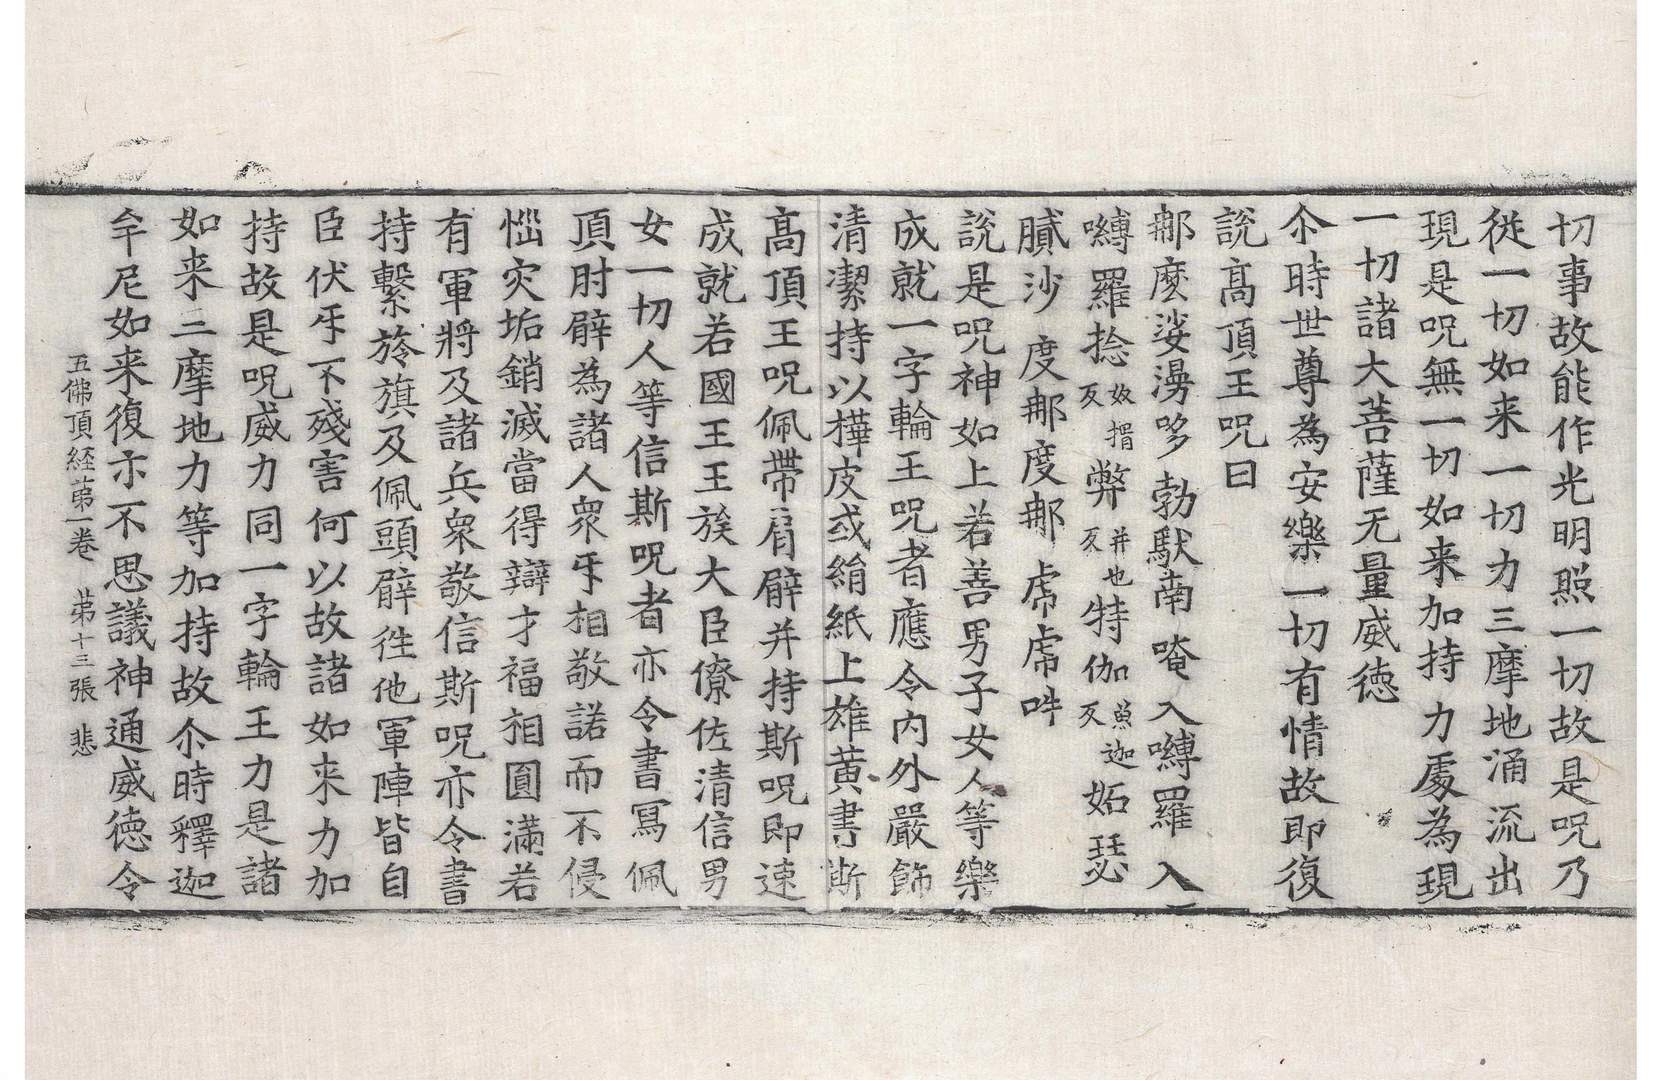 切事故能作光明照一切故是呪乃
従一切如来一切力三摩地涌流出
現是呪無一切如来加持力處為現
一切諸大菩薩无量威徳
尒時世尊為安樂一切有情故即復
說髙頂王呪曰
那麼娑湯哆勃馱南唵入嚩羅入
嚩羅捻奴揖反弊并也反特伽魚迦反妬瑟
膩沙度那度那虎虎吽
說是呪神如上若善男子女人等樂
成就一字輪王呪者應令内外嚴飾
清潔持以樺皮或絹紙上雄黄書斯
髙頂王呪佩帶肩臂并持斯呪即速
成就若國王王族大臣僚佐清信男
女一切人等信斯呪者亦令書冩佩
頂肘臂為諸人衆㸦相敬諾而不侵
惱灾垢銷滅當得辯才福相圓滿若
有軍將及諸兵衆敬信斯呪亦令書
持繫於旗及佩頭臂往他軍陣皆自
臣伏㸦不殘害何以故諸如来力加
持故是呪威力同一字輪王力是諸
如来三摩地力等加持故尒時釋迦
牟尼如来復亦不思議神通威徳令
五佛頂経苐一卷 苐十三張 悲